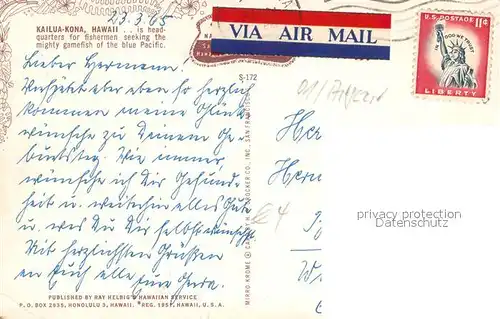 23.3.65
KAILUA-KONA, HAWAII . . is head-
quarters for fishermen seeking the
mighty gamefish of the blue Pacific.
VIA AIR MAIL
U.S. POSTAGE 11¢
IN GOD WE TRUST
LIBERTY
S-172
Lieber Hermann.
Verspätet aber eben so herzlich
kommen meine Glück
wünsche zu Deinem Ge-
burtstag. Wie immer,
wünsche ich Dir Gesund-
heit u. weiterhin alles Gute
u. was Du Dir selbst wünschst
Mit herzlichsten Grüßen
an Euch alle Eure
MIRRO-KROME CO., INC., SAN FRANCISCO
Her
privacy protection
Datenschutz
PUBLISHED BY RAY HELBIG'S HAWAIIAN SERVICE
P. O. BOX 2835, HONOLULU 3, HAWAII. REG. 1957, HAWAII, U. S. A.